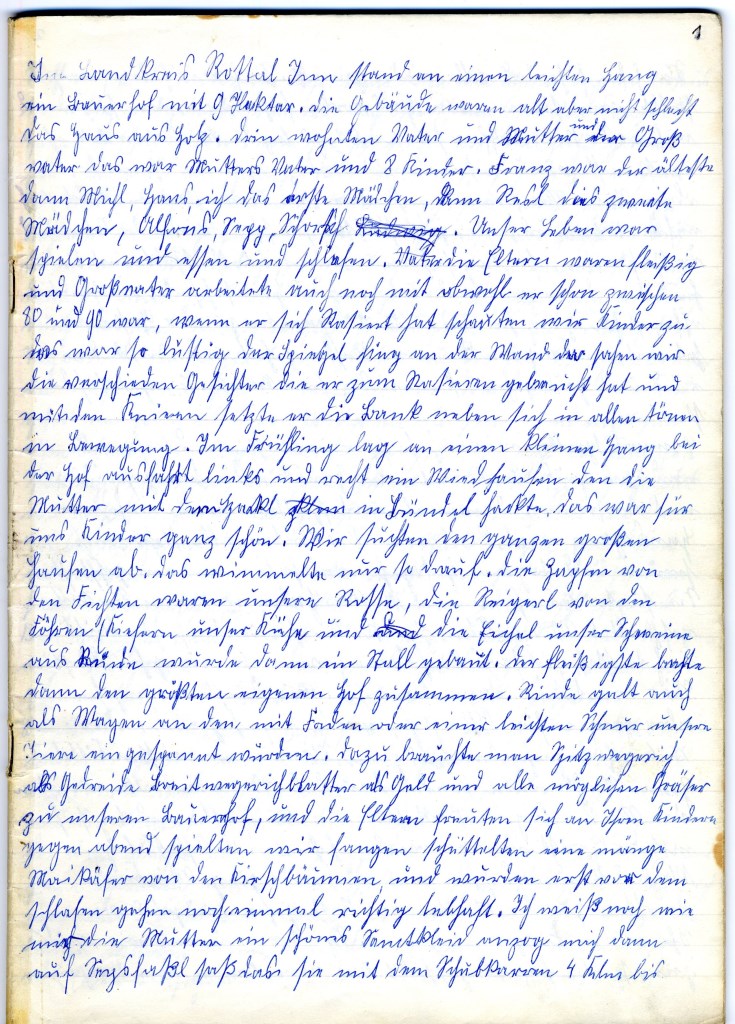 1
Im Landkreis Rottal Inn stand an einen leichten Hang
ein Bauerhof mit 9 Hektar. die Gebäude waren alt aber nicht schlecht
das Haus aus Holz. drin wohnten Vater und Mutter und der Groß
vater das war Mutters Vater und 8 Kinder. Franz war der älteste
dann Michl, Hans, ich das erste Mädchen, dann Resl dies zweite
Mädchen, Alfons, Sepp, Schorsch Ludwig. Unser Leben war
spielen und essen und schlafen. Vater die Eltern waren fleißig
und Großvater arbeitete auch noch mit obwohl er schon zwischen
80 und 90 war, wenn er sich Rasiert hat schauten wir Kinder zu.
das war so lustig der Spiegel hing an der Wand da sahen wir
die verschieden Gesichter die er zum Rasieren gebraucht hat und
mit den Knieen setzte er die Bank neben sich in allen tönen
in Bewegung. Im Frühling lag an einen kleinen Hang bei
der Hof ausfahrt links und recht ein Wiedhaufen den die
Mutter mit dem Hackl in Bündel hackte, das war für
uns Kinder ganz schön. Wir suchten den ganzen großen
Haufen ab. das wimmelte nur so drauf. die Zapfen von
den Fichten waren unsere Rosse, die Reigerl von den
Föhren (Kiefern unser Kühe und die Eichel unser Schweine
aus Rinde wurde dann ein Stall gebaut. der fleißigste brachte
dann den größten eigenen Hof zusammen. Rinde galt auch
als Wagen an den mit Faden oder einer leichten Schnur unsere
Tiere eingespannt wurden. dazu brauchte man Spitzwegerich
als Gedreide Breitwegerichblätter als Geld und alle möglichen Gräser
zu unseren Bauernhof, und die Eltern freuten sich an Ihren Kindern
gegen abend spielten wir fangen schüttelten eine mänge
Maikäfer von den Kirschbäumen, und wurden erst vor dem
schlafen gehen nocheinmal richtig lebhaft. Ich weiß noch wie
mir die Mutter ein schönes Samtkleid anzog mich dann
auf saß das sie mit dem Schubkarren 4 Klm bis